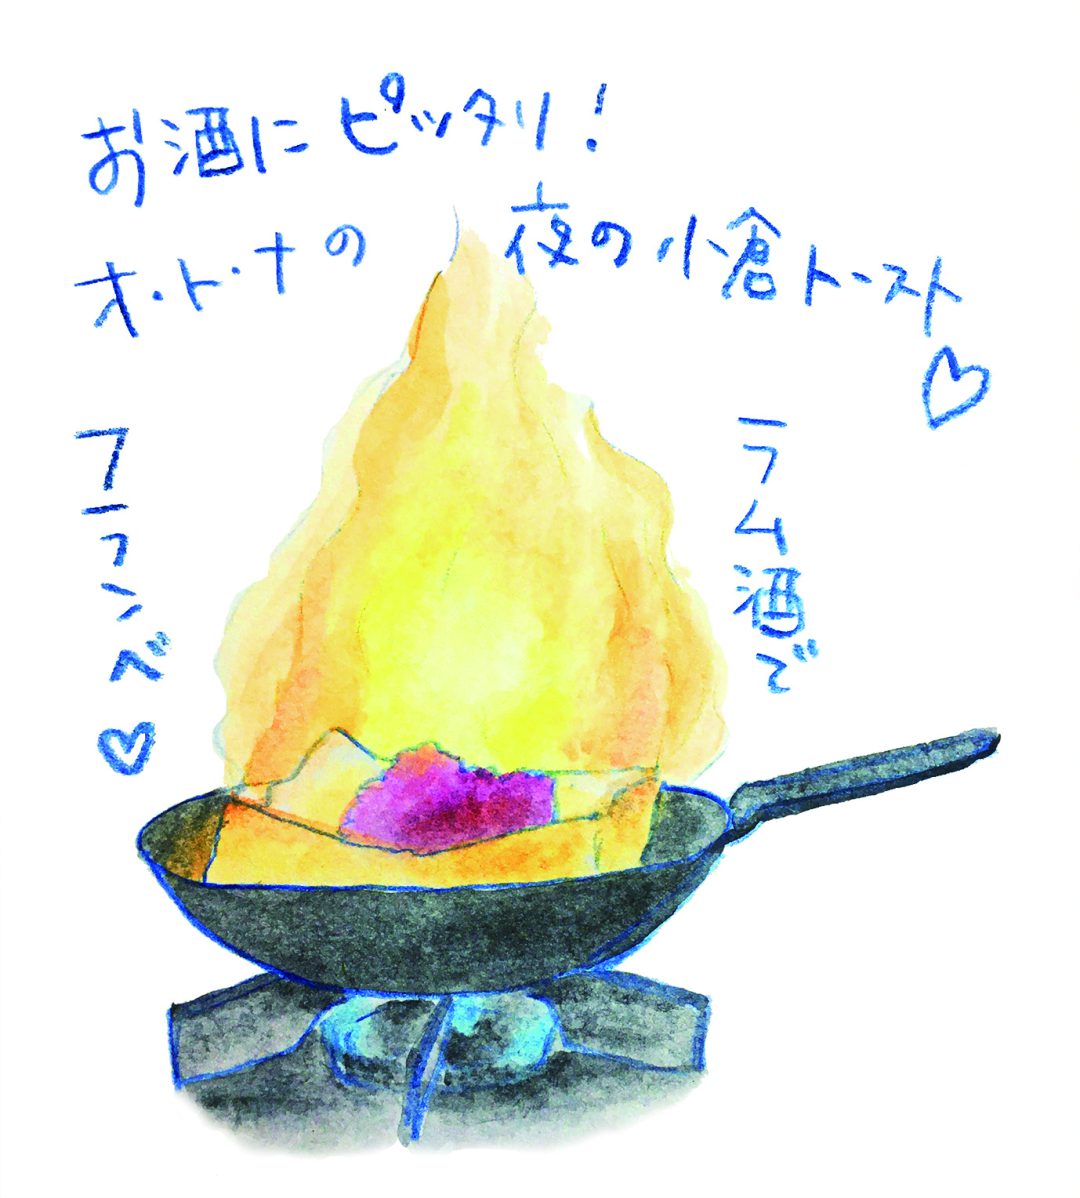 お酒にピッタリ!
オ・ト・ナの 夜の小倉トースト♡
ラム酒で
フランベ♡